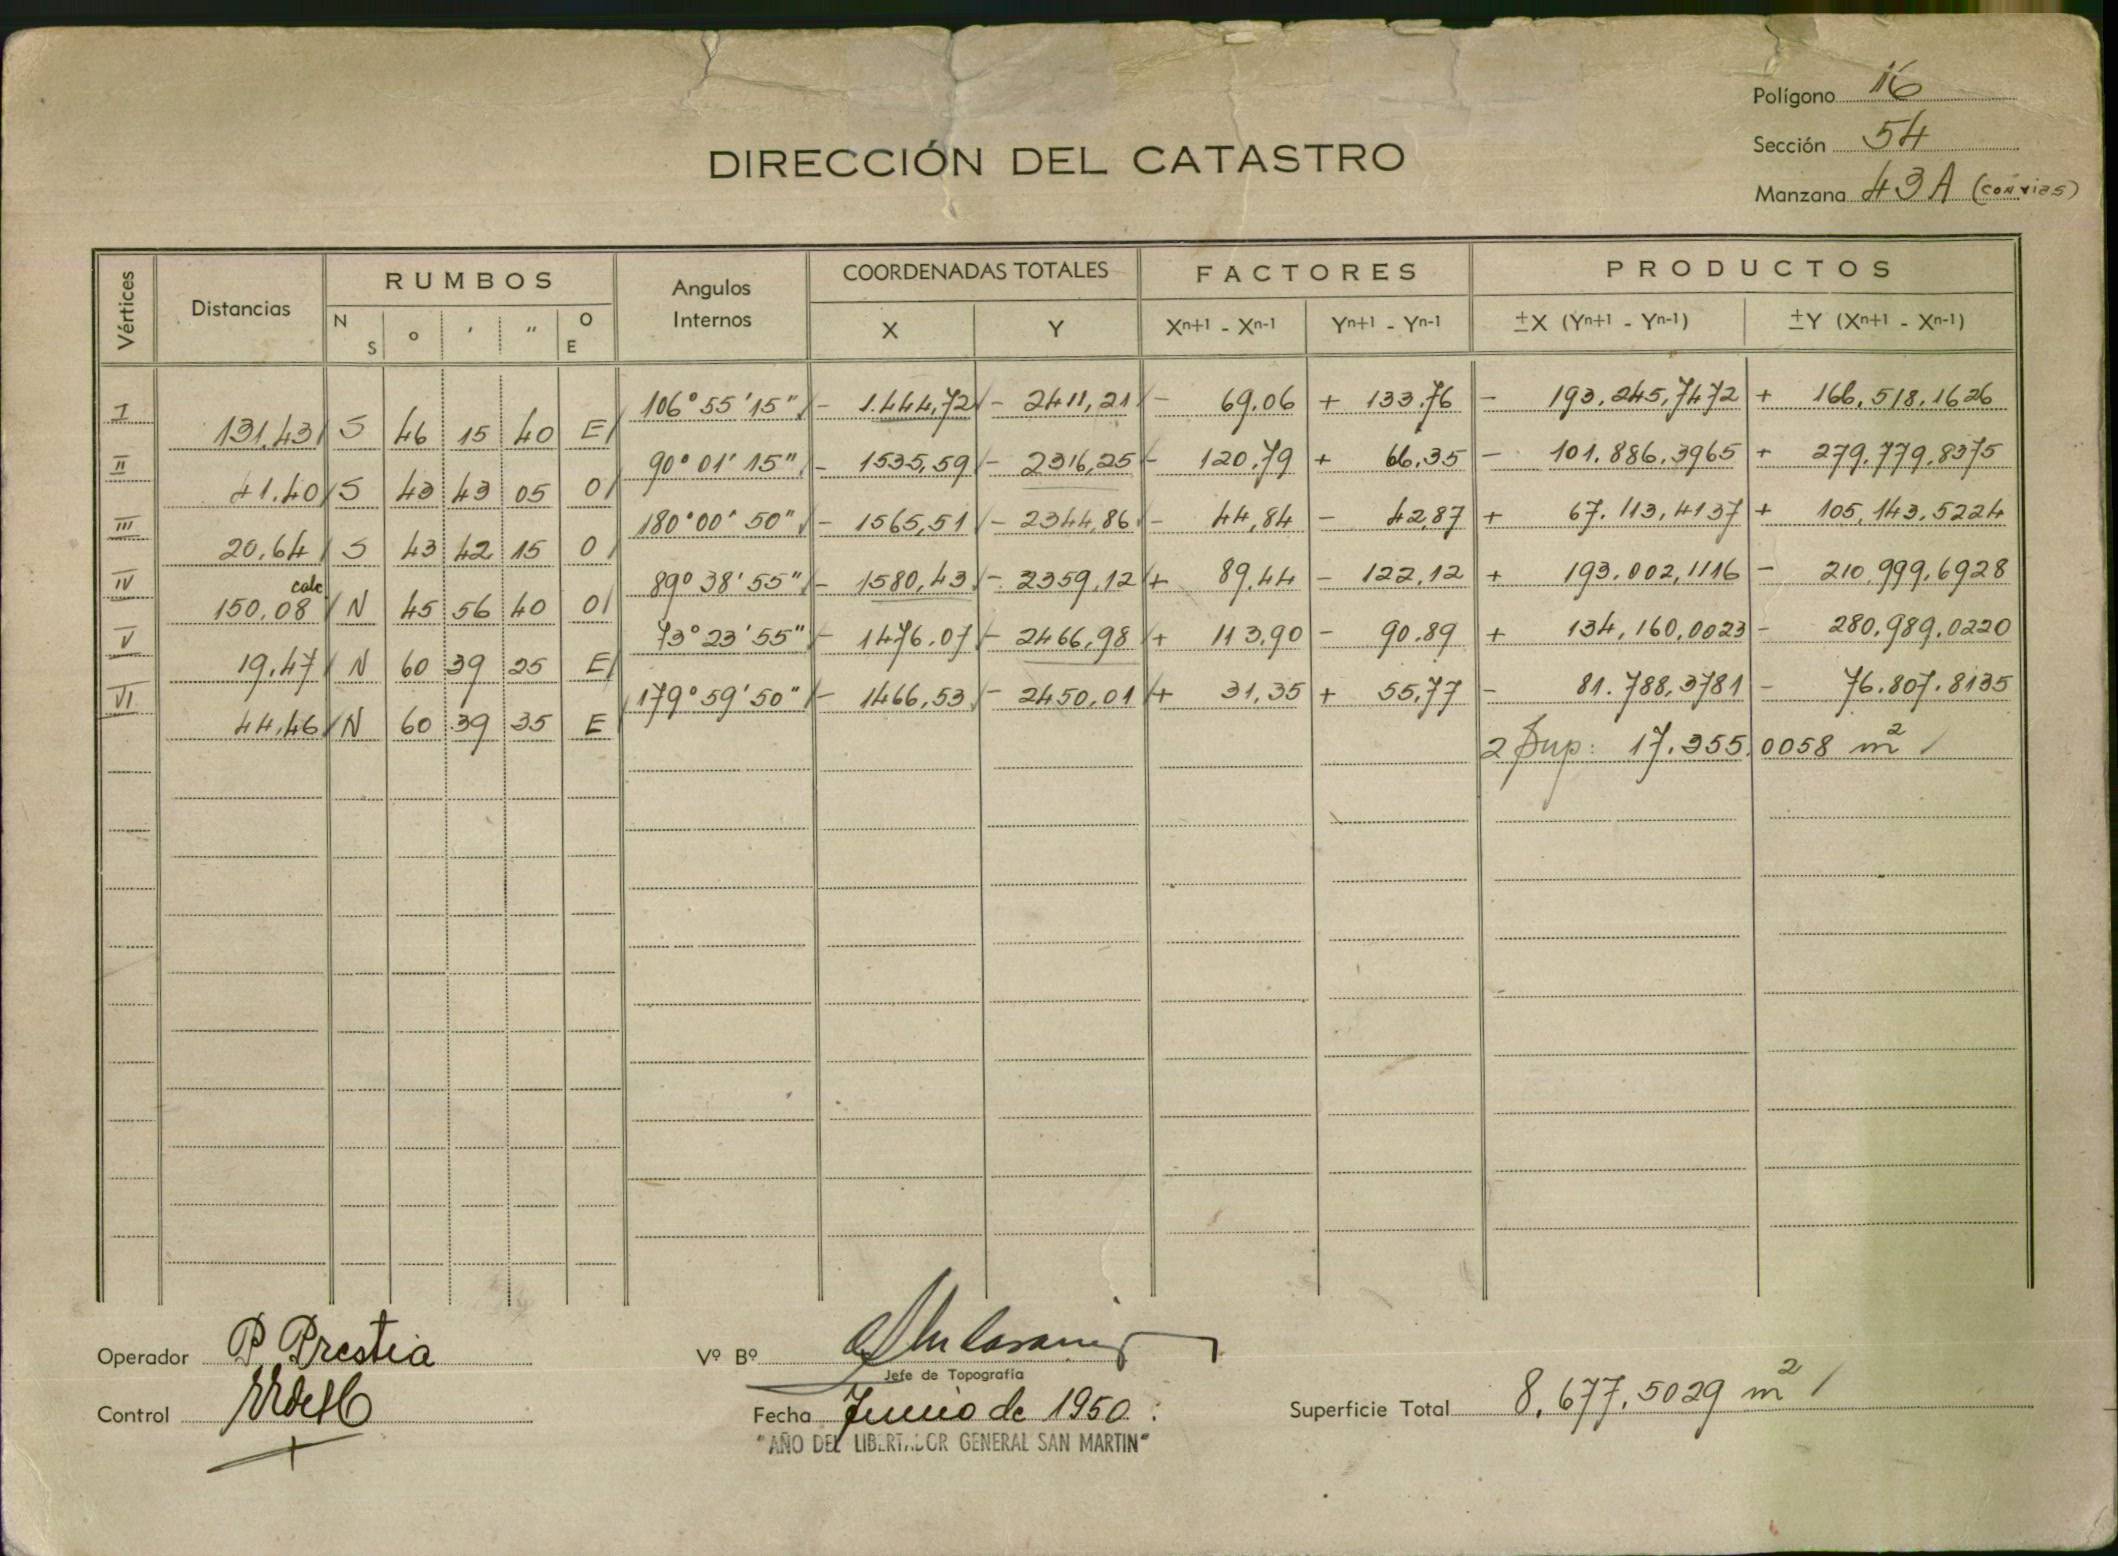 Polígono 16
Sección 54
Manzana 43 A (con vias)
DIRECCIÓN DEL CATASTRO
Vértices Distancias RUMBOS Angulos Internos COORDENADAS TOTALES FACTORES PRODUCTOS
N S o ' " O E X Y Xn+1 - Xn-1 Yn+1 - Yn-1 ±X (Yn+1 - Yn-1) ±Y (Xn+1 - Xn-1)
I 106° 55' 15" - 1.444,72 - 2411,21 - 69.06 + 133.76 - 193.245,7472 + 166.518.1626
131.43 S 46 15 40 E
II 90° 01' 15" - 1535,59 - 2316,25 - 120.79 + 66.35 - 101.886,3965 + 279.779.8375
41.40 S 43 43 05 O
III 180° 00' 50" - 1565,51 - 2344,86 - 44,84 - 42,87 + 67.113,4137 + 105.143.5224
20.64 S 43 42 15 O
IV 89° 38' 55" - 1580,43 - 2359,12 + 89,44 - 122,12 + 193.002,1116 - 210.999.6928
calc
150.08 N 45 56 40 O
V 73° 23' 55" - 1476.07 - 2466,98 + 113,90 - 90.89 + 134,160,0023 - 280.989.0220
19.47 N 60 39 25 E
VI 179° 59' 50" - 1466,53 - 2450,01 + 31.35 + 55,77 - 81.788,3781 - 76.807.8135
44,46 N 60 39 35 E
2 Sup: 17.355.0058 m²
Operador P. Prestia
Vº Bº
Jefe de Topografía
Control
Fecha Junio de 1950.
"AÑO DEL LIBERTADOR GENERAL SAN MARTIN"
Superficie Total 8.677.5029 m²